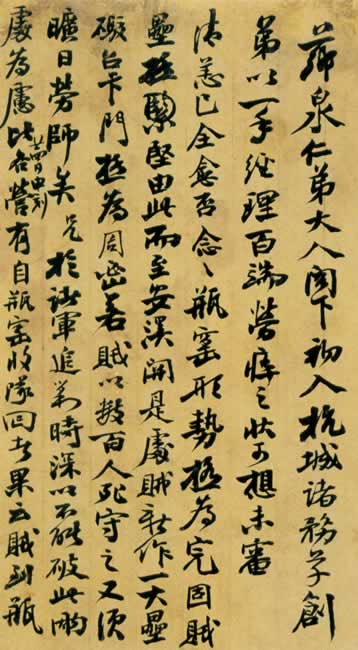 薌泉仁弟大人閣下初入杭城諸務草創
弟以一手經理百端勞瘁之狀可想未審
清恙已全愈否念〻瓶窰形勢極為完固賊
壘極緊堅由此而至安溪關是處賊新作一大壘
礮台卡門極為周密若賊以數百人死守之又須
曠日勞師矣兄於諸軍追剿時深以不能破此兩
處為慮比廿四日申刻各營有自瓶窰收隊回者果云賊到瓶